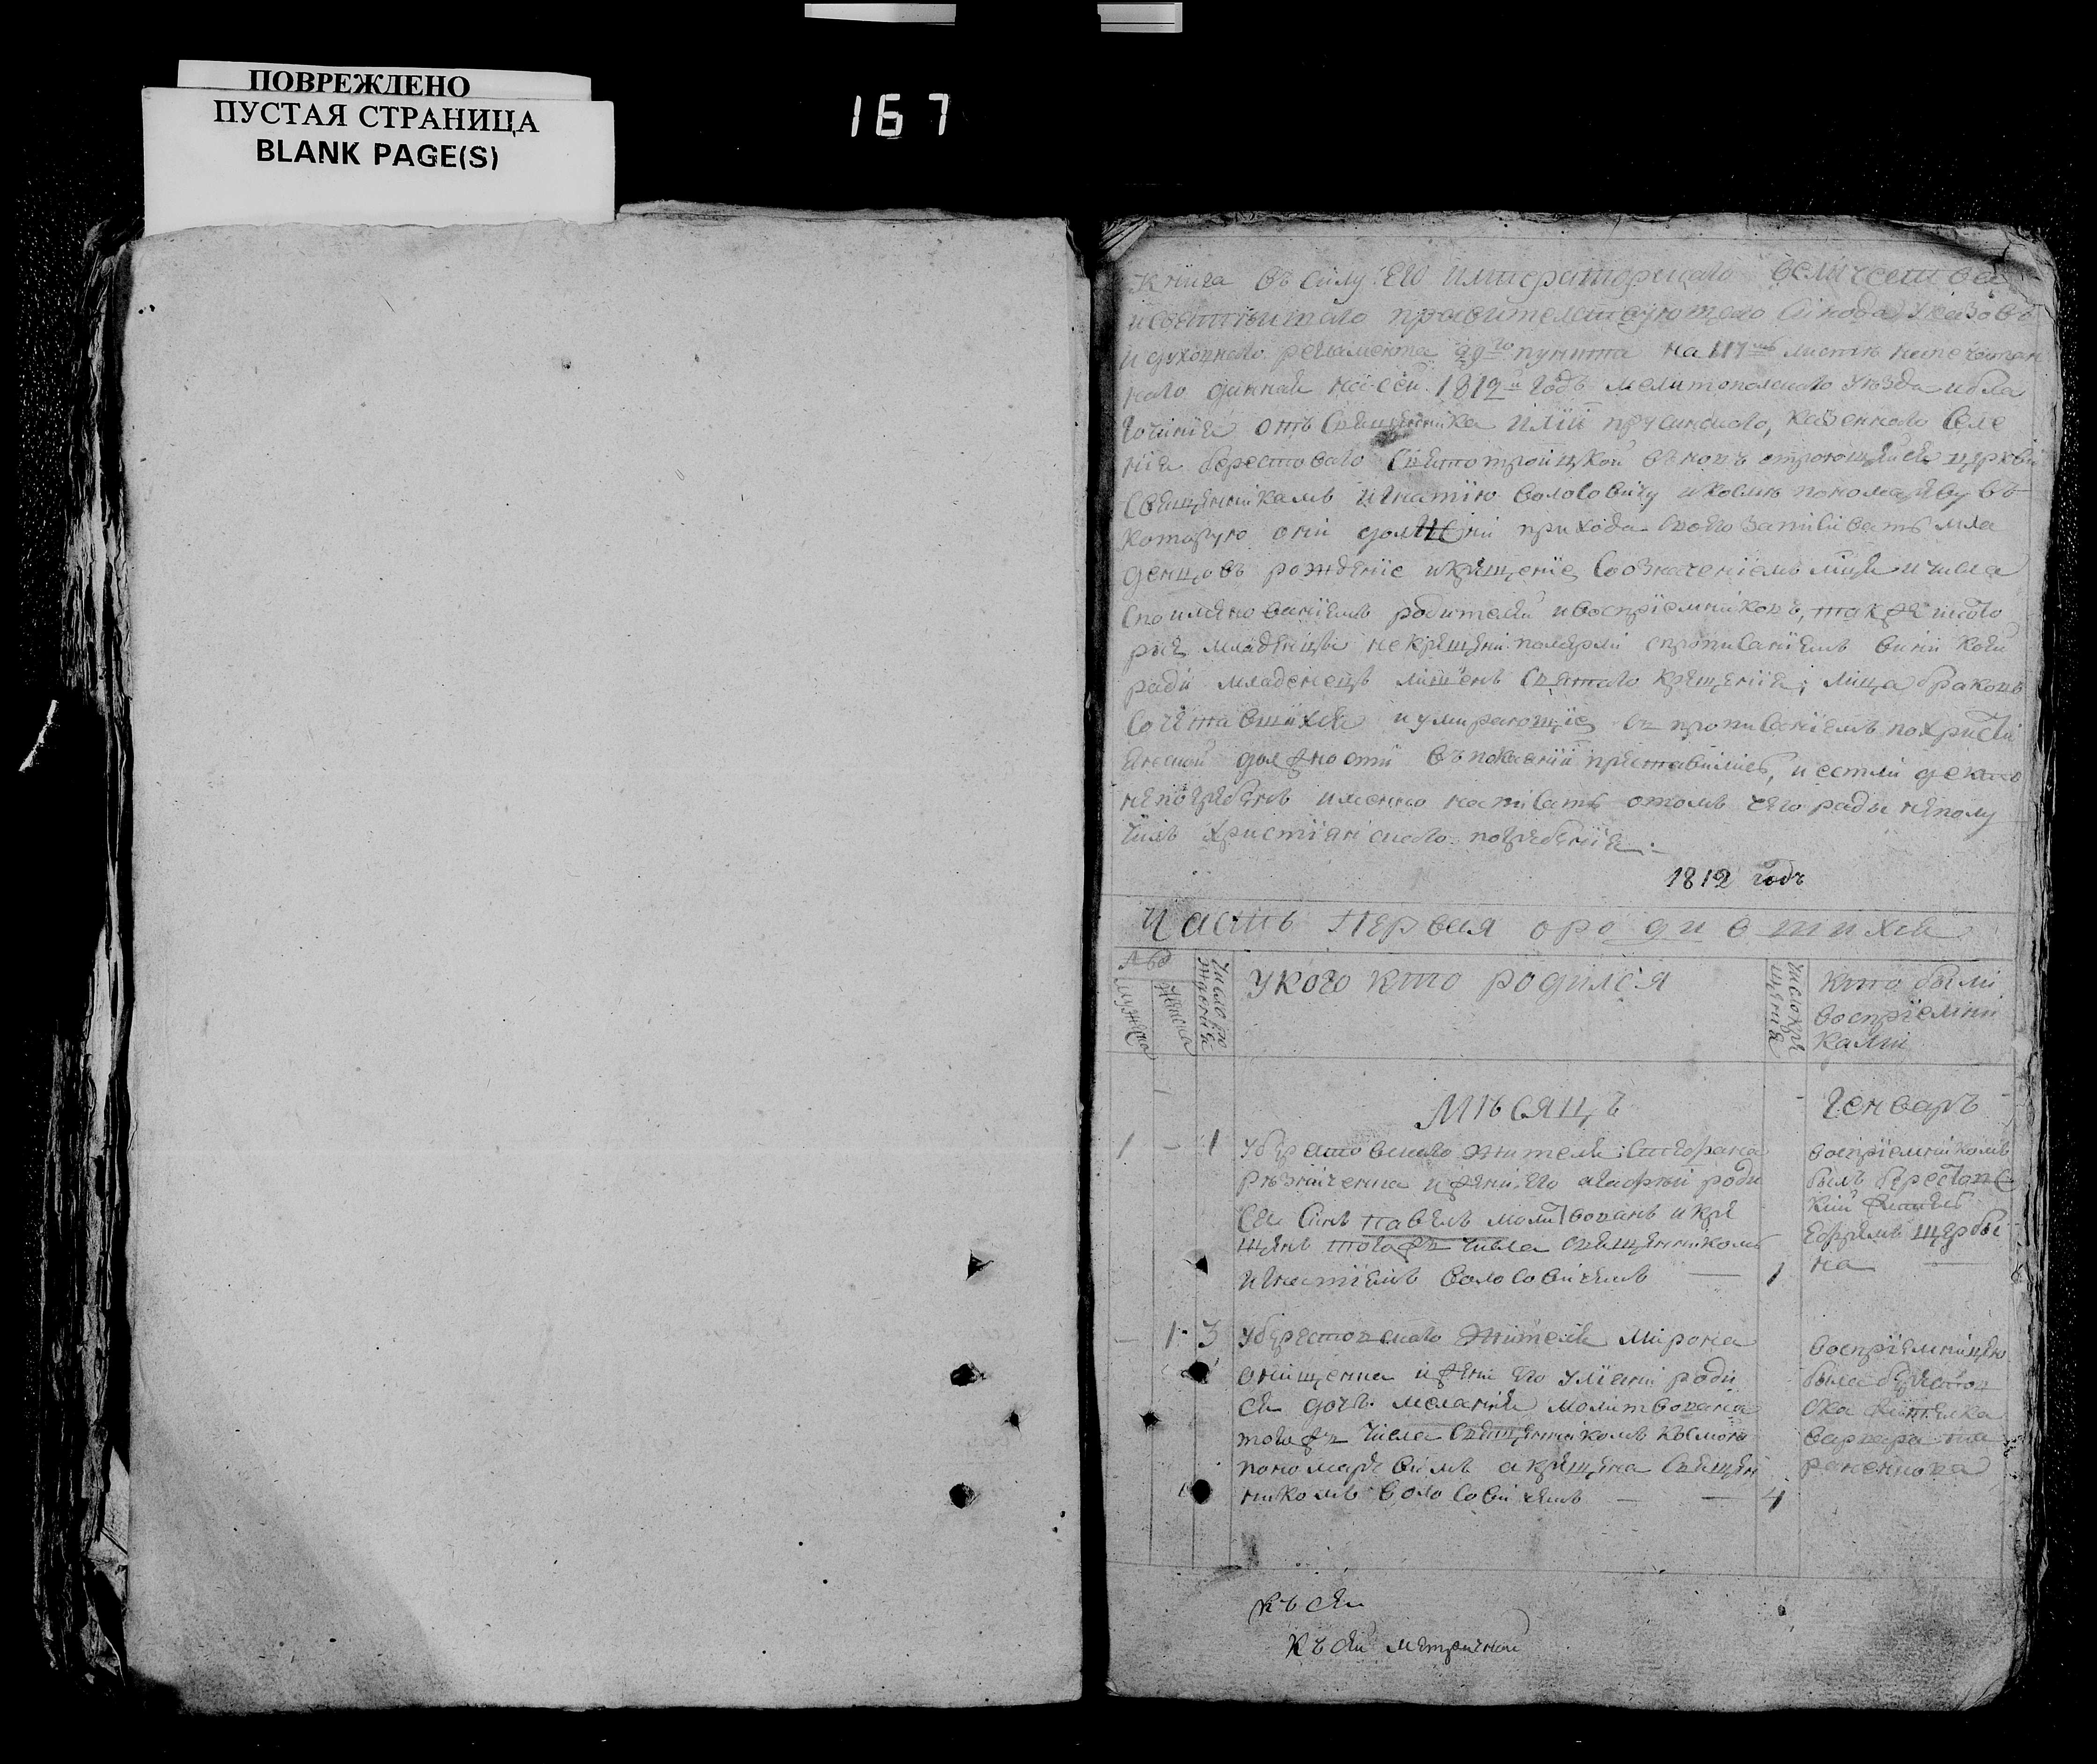 ПОВРЕЖДЕНО
ПУСТАЯ СТРАНИЦА
BLANK PAGE(S)
167
Книга въ силу Его Императорскаго величества
и святѣйшаго правителствующаго Сѵнода указовъ
и духовнаго регламента пункта на листѣ напечатан
наго данная на сей 1812й годъ мелитополскаго уѣзда и бла
гочинія отъ Священника Иліи казеннаго Селе
нія берестоваго Святотроицкой въ новь строющейся церкви
Священникамъ Игнатію волосовичу и космѣ пономареву въ
которую они должни прихода своего записивать мла
денцовъ рожденіе и крещеніе, Соозначеніемъ мѣсяца и числа
Споименованіемъ родителей и воспріемниковъ, также и кото
рие младенци некрещени померли спрописаніемъ вини коей
ради младенецъ лишенъ Святаго крещенія; лица бракомъ
Сочетавшихся и умирающіе съ прописаніемъ по христі
анской должности въ покаяніи преставились, и естли де кто
непогребенъ именно написать отомъ чего ради неполу
чилъ христіянскаго погребенія.
1812 годъ
Часть первая ородившихся
мужеска
женска
Число ро
жденія
укого кто родился
Число кре
щенія
кто были
воспріемни
камы
Мѣсяцъ Генварь
1 - 1 Уберестовскаго жителя Стефана
Рѣзниченка и жени его агафіи роди
ся Синъ павелъ молитвованъ и кре
щенъ тогожъ числа Священникомъ
Игнатіемъ волосовичемъ — 1
воспріемникомъ
былъ берестовс
кій житель
Ефремъ щерби
на
- 1 3 Уберестовскаго жителя Мирона
онищенка и жени его уліани роди
ся дочь меланія молитвована
тогожъ числа Священникомъ космою
пономаревимъ а крещена Священ
никомъ волосовичемъ — — 4
воспріемницею
была берестов
ска жителка
варвара
къ сей
къ сей метрической